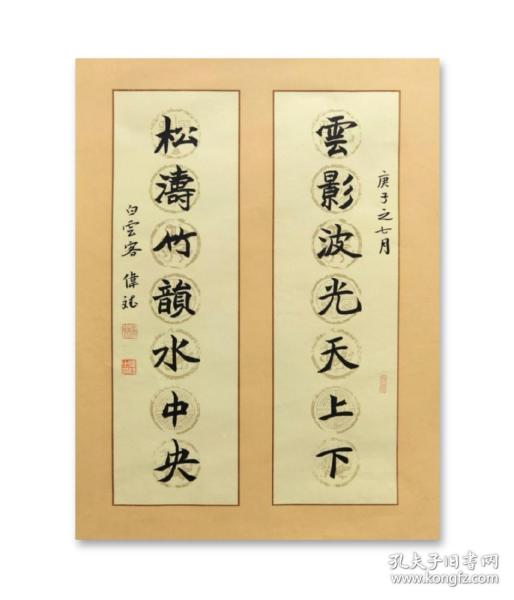 庚子之七月
雲影波光天上下
松濤竹韻水中央
白雲客 偉
孔夫子旧书网
www.kongfz.com